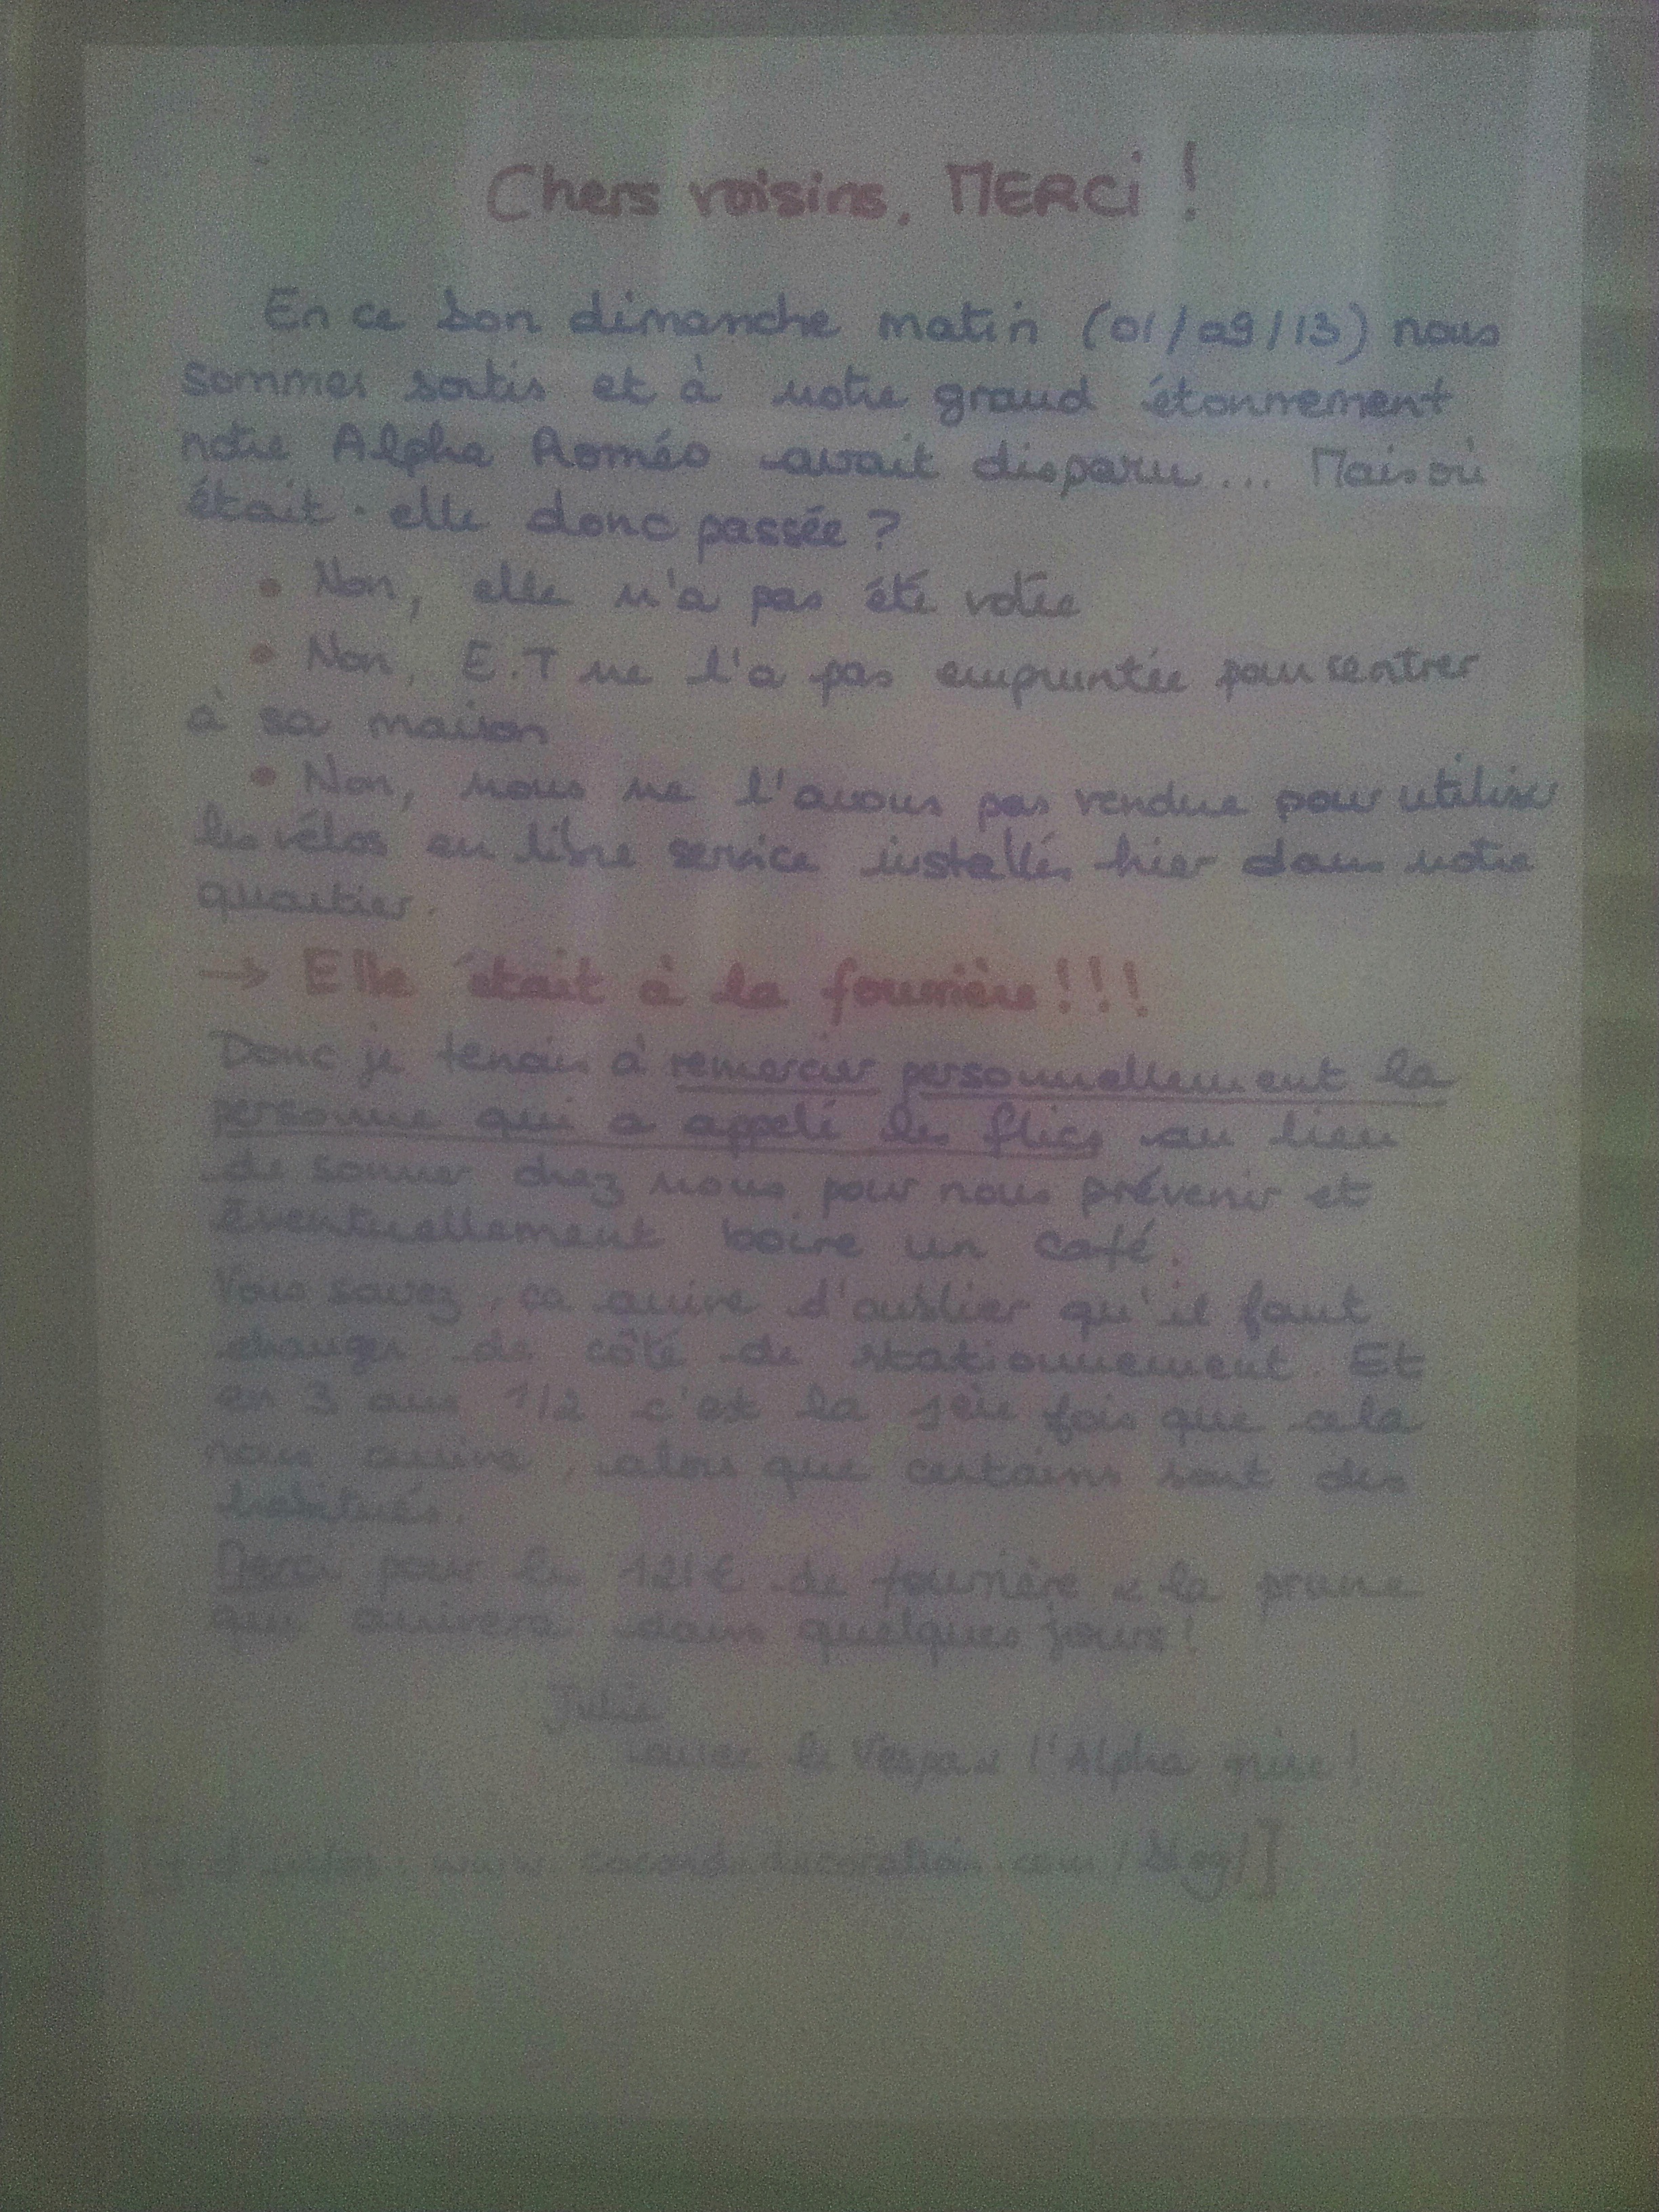 Chers voisins, MERCi !
En ce bon dimanche matin (01/09/13) nous
sommes sortis et à notre grand étonnement
notre Alpha Roméo avait disparu... Mais où
était-elle donc passée ?
• Non, elle n'a pas été volée
• Non, E.T ne l'a pas empruntée pour rentrer
à sa maison
• Non, nous ne l'avons pas vendue pour utiliser
les vélos en libre service installés hier dans notre
quartier.
→ Elle était à la fourrière !!!
Donc je tenais à remercier personnellement la
personne qui a appelé les flics au lieu
de sonner chez nous pour nous prévenir et
éventuellement boire un café.
Vous savez, ça arrive d'oublier qu'il faut
changer de côté de stationnement. Et
en 3 ans 1/2 c'est la 1ère fois que cela
nous arrive, alors que certains sont des
habitués.
Merci pour les 121€ de fourrière & la prune
qui arrivera dans quelques jours !
Julie
avec le Vespa & l'Alpha grise !
[+ d'infos : www. .com/blog/]